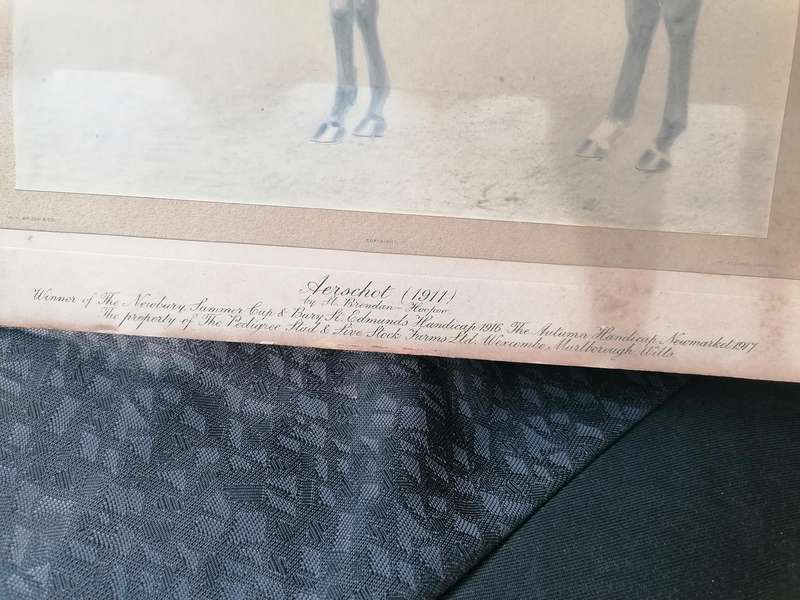 COPYRIGHT
Aerschot (1911)
by St. Brendan — Hoopoe
Winner of The Newbury Summer Cup & Bury St. Edmunds Handicap 1916, The Autumn Handicap Newmarket 1917.
The property of The Pedigree Stud & Live Stock Farms Ltd. Wexcombe, Marlborough, Wilts.